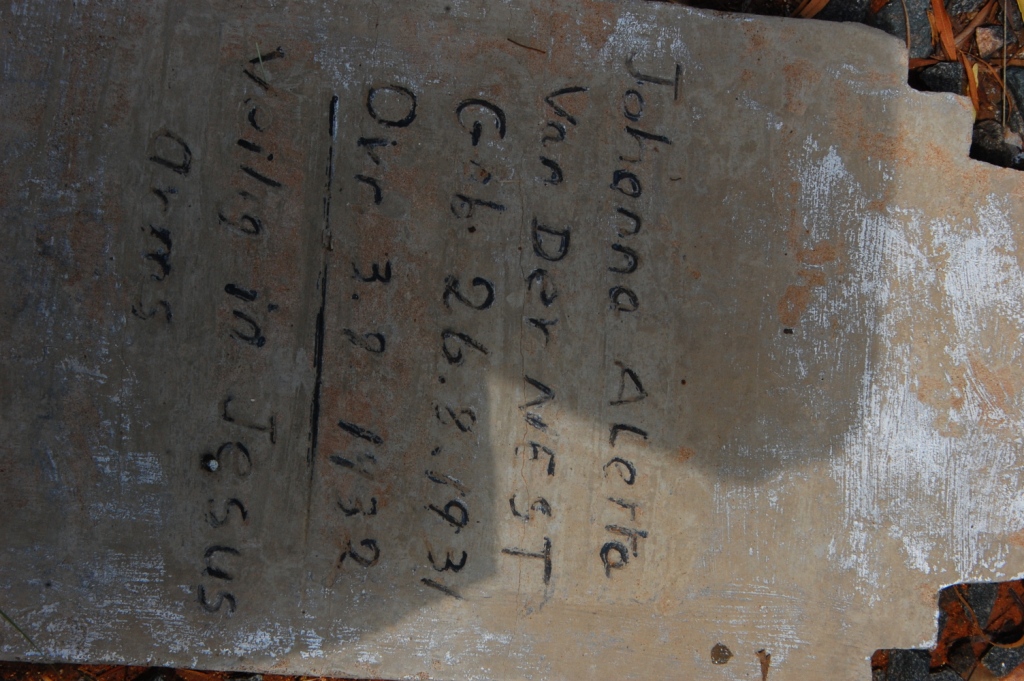 Johanna Alerta
Van Der NEST
Geb. 26.2.1931
Ovr 3.8 1432
Veilig in Jesus
Arms